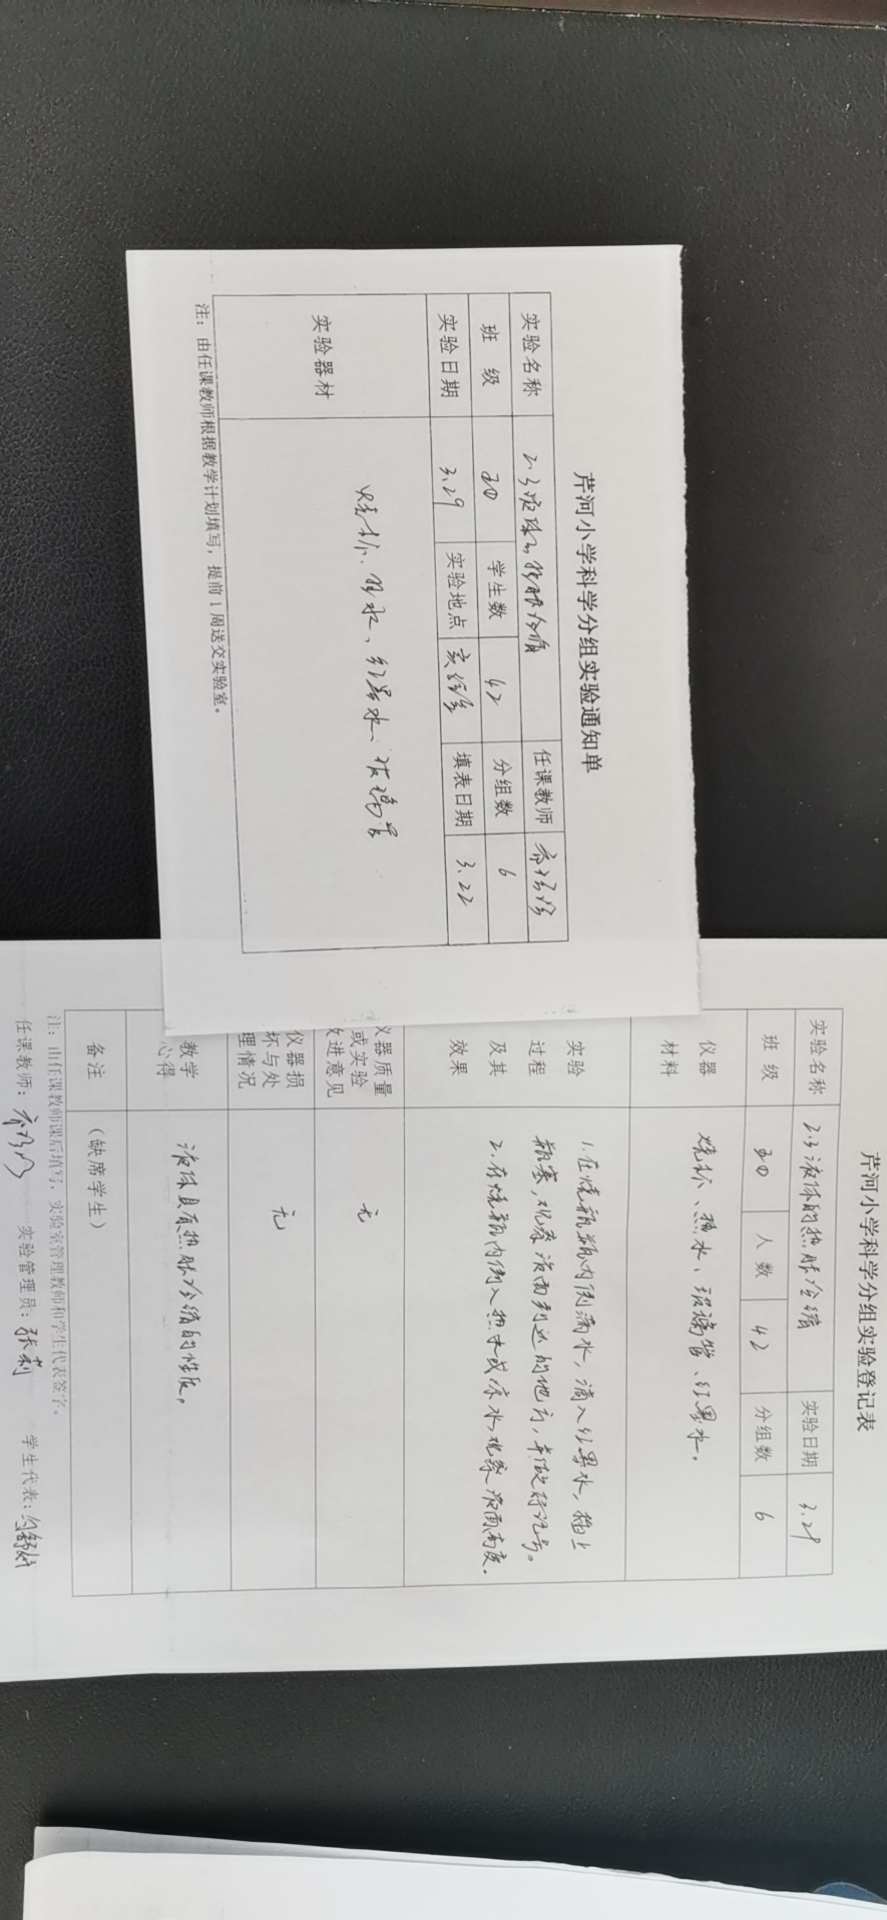 芹河小学科学分组实验通知单
实验名称 2.3液体的热胀冷缩 任课教师
班 级 学生数 42 分组数 6
实验日期 3.29 实验地点 实验室 填表日期 3.22
实验器材 烧杯、热水、红墨水、玻璃管
注：由任课教师根据教学计划填写，提前1周送交实验室。
芹河小学科学分组实验登记表
实验名称 2.3液体的热胀冷缩 实验日期 3.29
班 级 人 数 42 分组数 6
仪器材料 烧杯、热水、玻璃管、红墨水。
实验过程及其效果
1.在烧瓶瓶内倒满水，滴入红墨水，插上
瓶塞，观察液面到达的地方，并做好记号。
2.在烧瓶内倒入热水或凉水，观察液面高度。
仪器质量或实验改进意见 无
仪器损坏与处理情况 无
教学心得 液体具有热胀冷缩的性质。
备注 （缺席学生）
注：由任课教师课后填写，实验室管理教师和学生代表签字。
任课教师： 实验管理员：张莉 学生代表：